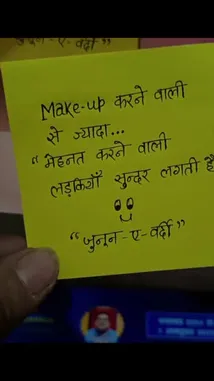 जुनून-ए-वर्दी"
Make-up करने वाली
से ज्यादा...
"मेहनत करने वाली
लड़कियाँ सुन्दर लगती है
"जुनून-ए-वर्दी"